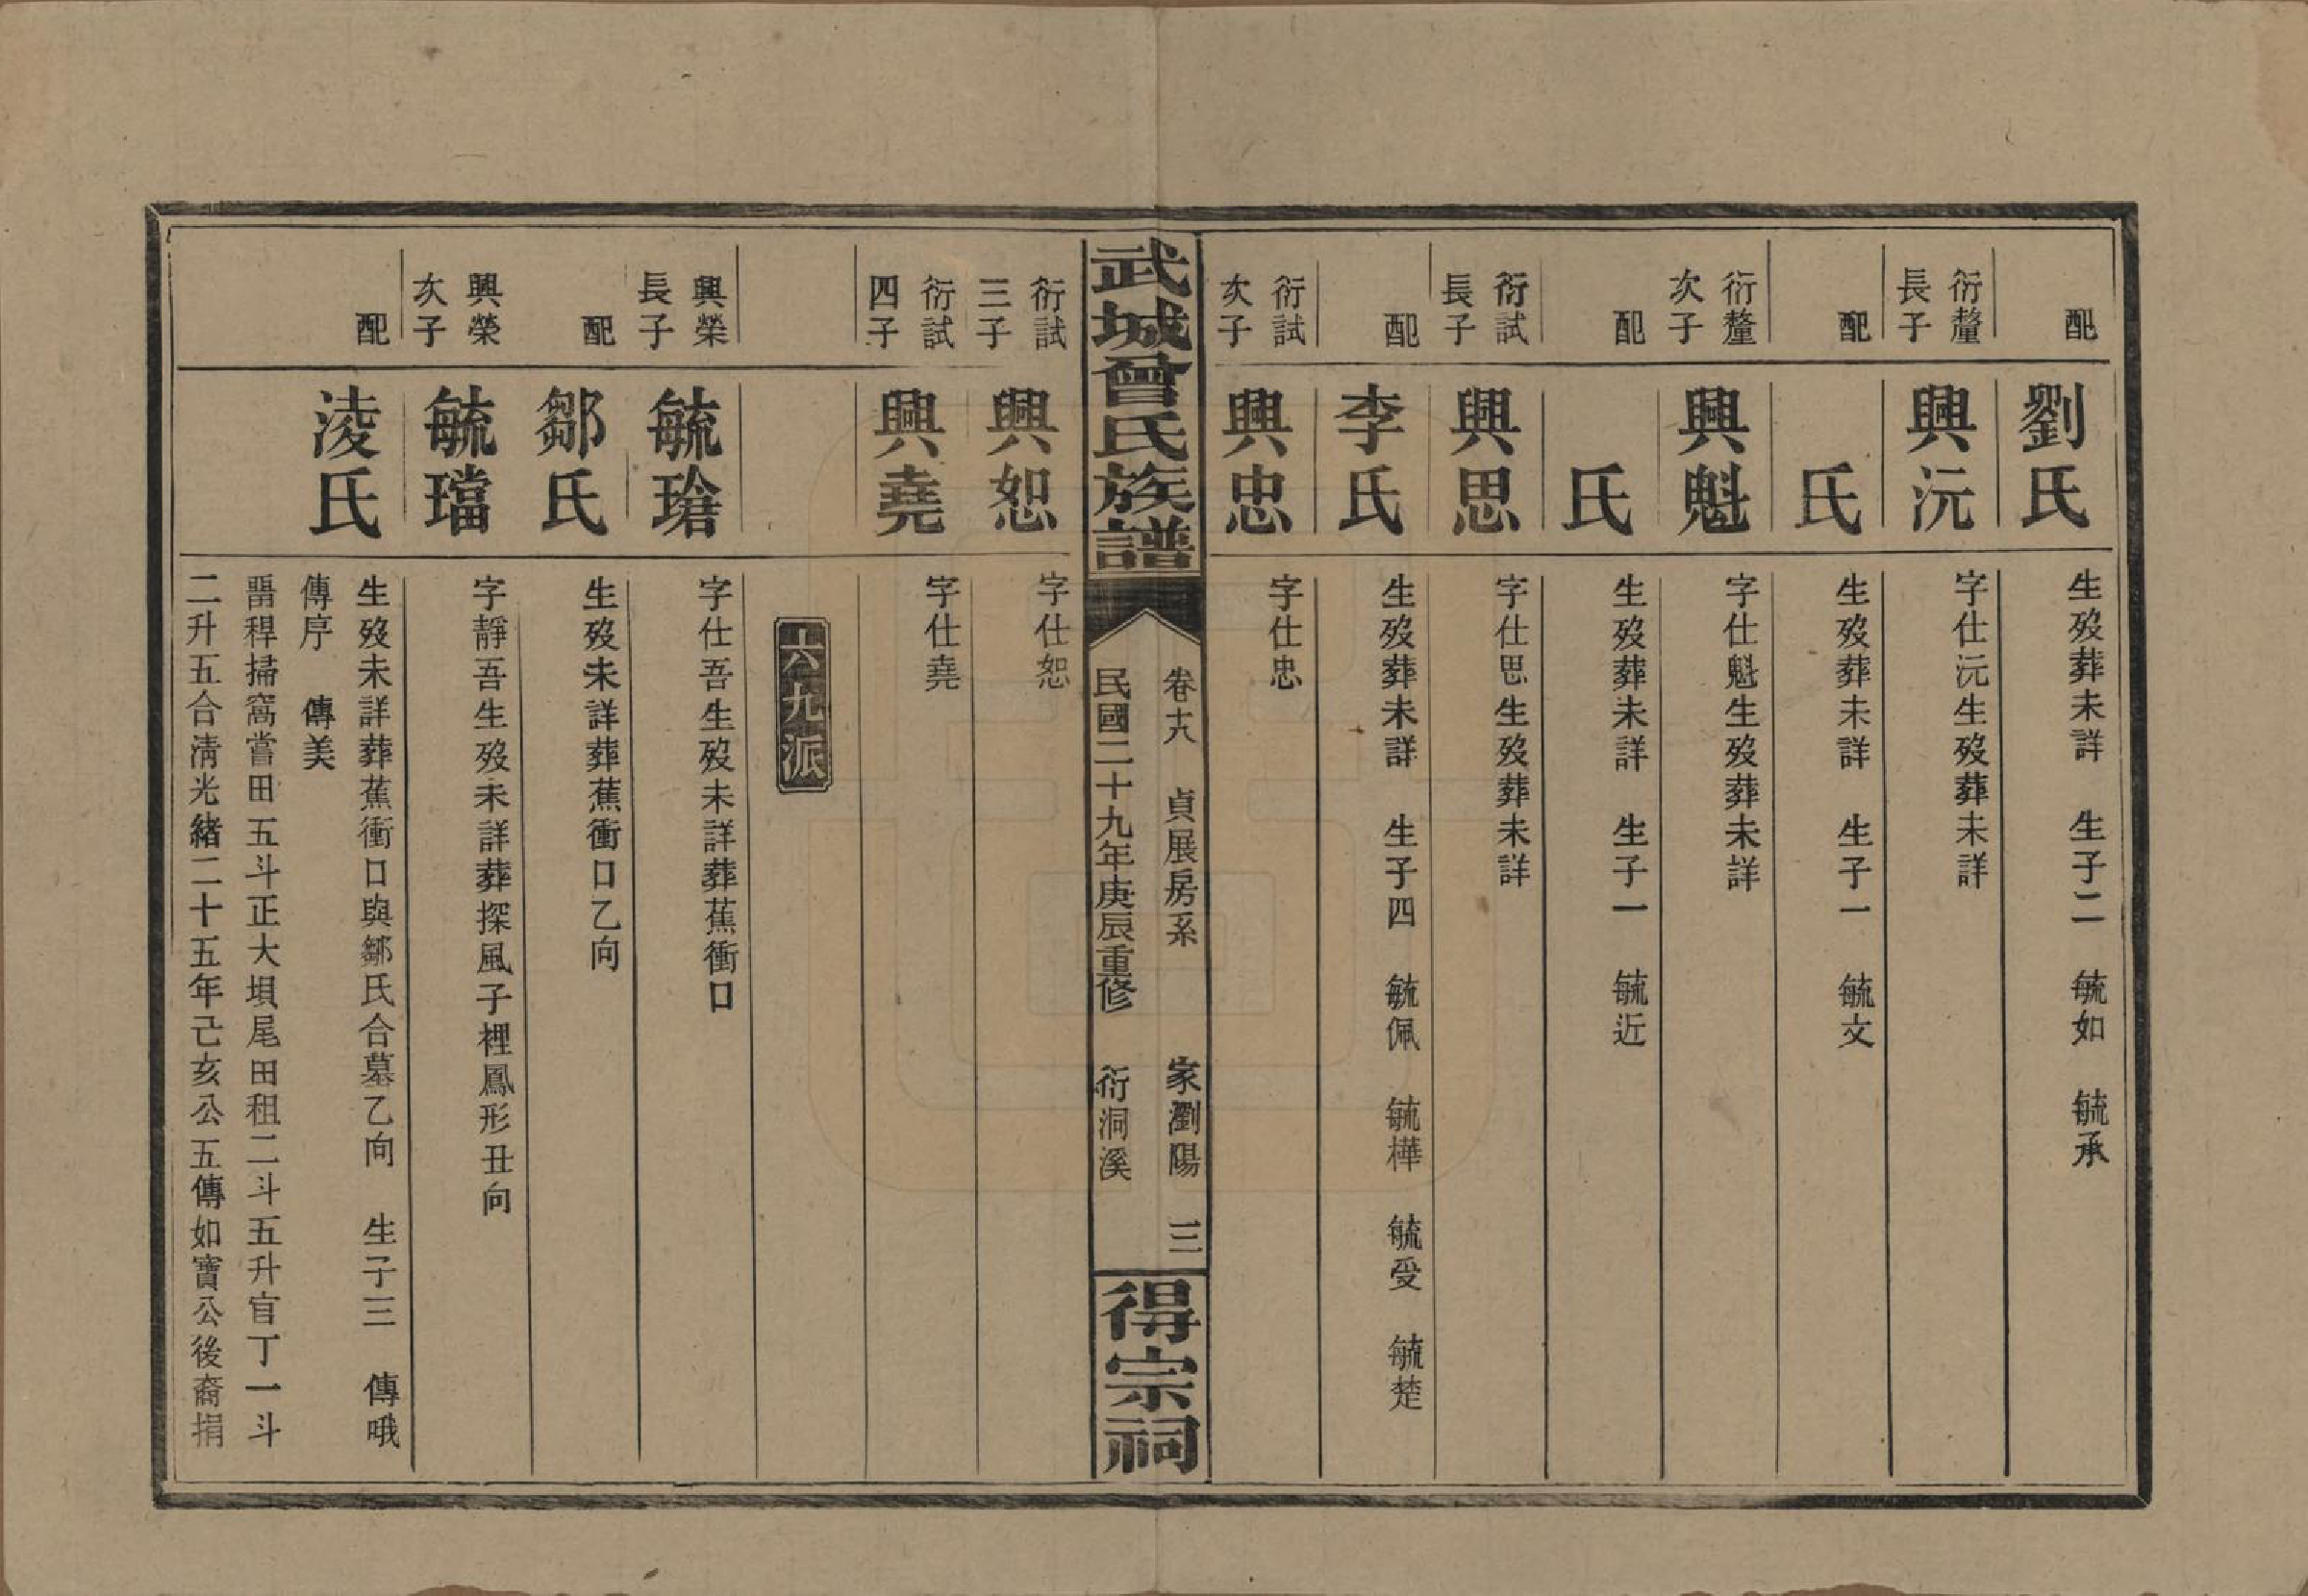 配 劉氏 生歿葬未詳 生子二 毓如 毓承
衍釐長子 興沅 字仕沅生歿葬未詳
配 氏 生歿葬未詳 生子一 毓文
衍釐次子 興魁 字仕魁生歿葬未詳
配 氏 生歿葬未詳 生子一 毓近
衍試長子 興思 字仕思生歿葬未詳
配 李氏 生歿葬未詳 生子四 毓佩 毓樺 毓受 毓楚
衍試次子 興忠 字仕忠
武城曾氏族譜
卷十八 貞展房系 家瀏陽 三
民國二十九年庚辰重修 衍洞溪
得宗祠
衍試三子 興恕 字仕恕
衍試四子 興堯 字仕堯
六九派
興榮長子 毓瑲 字仕吾生歿未詳葬蕉衝口
配 鄒氏 生歿未詳葬蕉衝口乙向
興榮次子 毓璫 字靜吾生歿未詳葬探風子裡鳳形丑向
配 淩氏 生歿未詳葬蕉衝口與鄒氏合墓乙向 生子三 傳哦
傳序 傳美
畱稈掃窩嘗田五斗正大垻尾田租二斗五升官丁一斗
二升五合清光緒二十五年己亥公五傳如寶公後裔捐